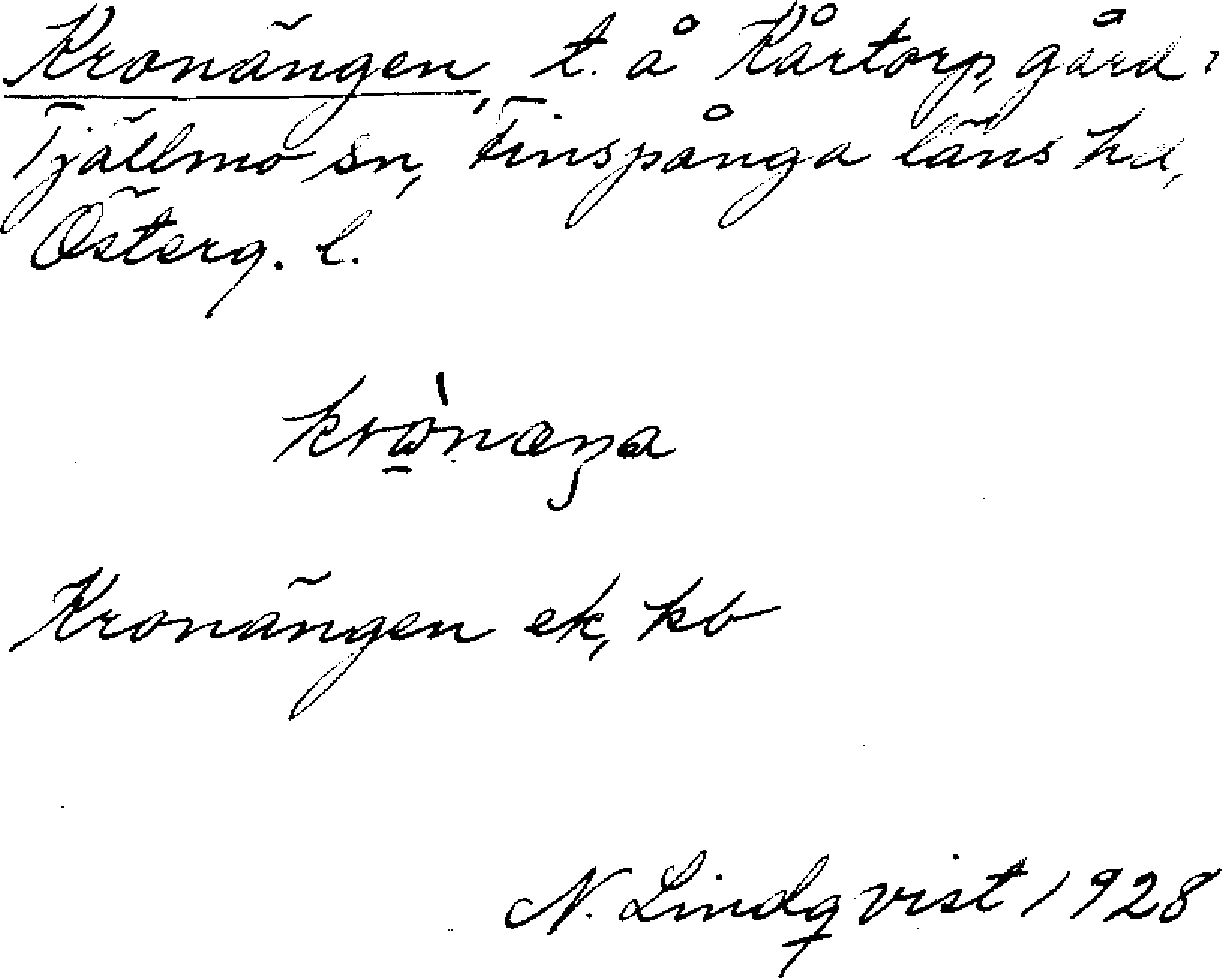 Kronängen, t. å Kårtorp, gård,
Tjällmo sn, Finspånga läns hd,
Österg. l.
krònæŋa
Kronängen ek, kb
N. Lindqvist 1928